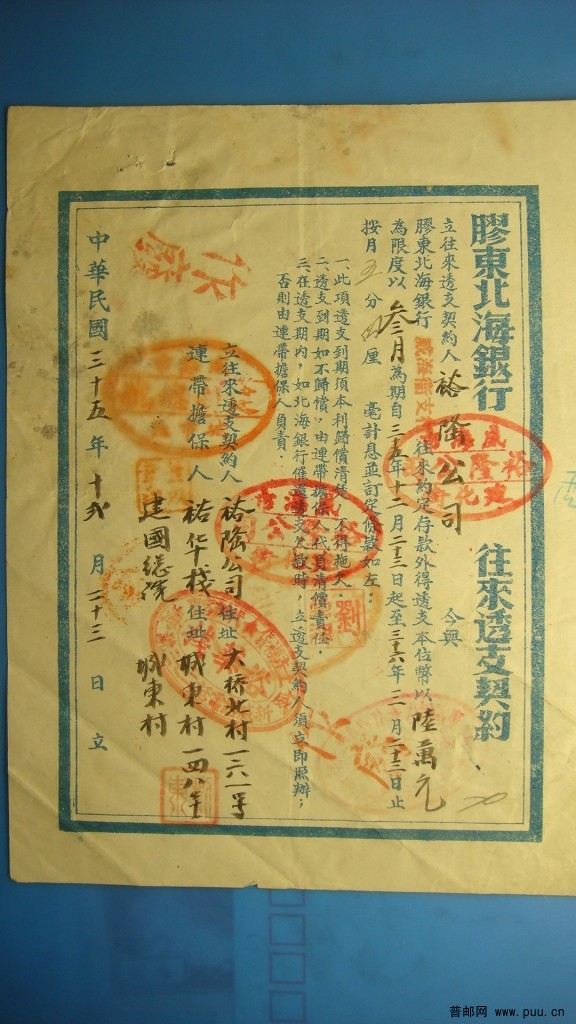 膠東北海銀行 往來透支契約
立往來透支契約人 裕隆公司 今與
膠東北海銀行 威海衛支 往來約定存款外得透支本位幣以 陸萬元
為限度以 叁月 為期自 三五年 十二月 二十三日起至 三十六年 三月 二十三日止
按月 分 厘 毫計息並訂定條款如左：
一、此項透支到期須本利歸償清楚，不得拖欠。
二、透支到期如不歸償，由連帶擔保人代負清償責任。
三、在透支期內，如北海銀行催還透支欠款時，立透支契約人須立即照辦；
否則由連帶擔保人負責。
立往來透支契約人 裕隆公司 住址 大桥北村一六一号
連帶擔保人 裕华栈 住址 城東村一四八号
建國總 城東村
中華民國 三十五年 十弍月 二十三日 立
作廢
注銷
普邮网 www.puu.cn